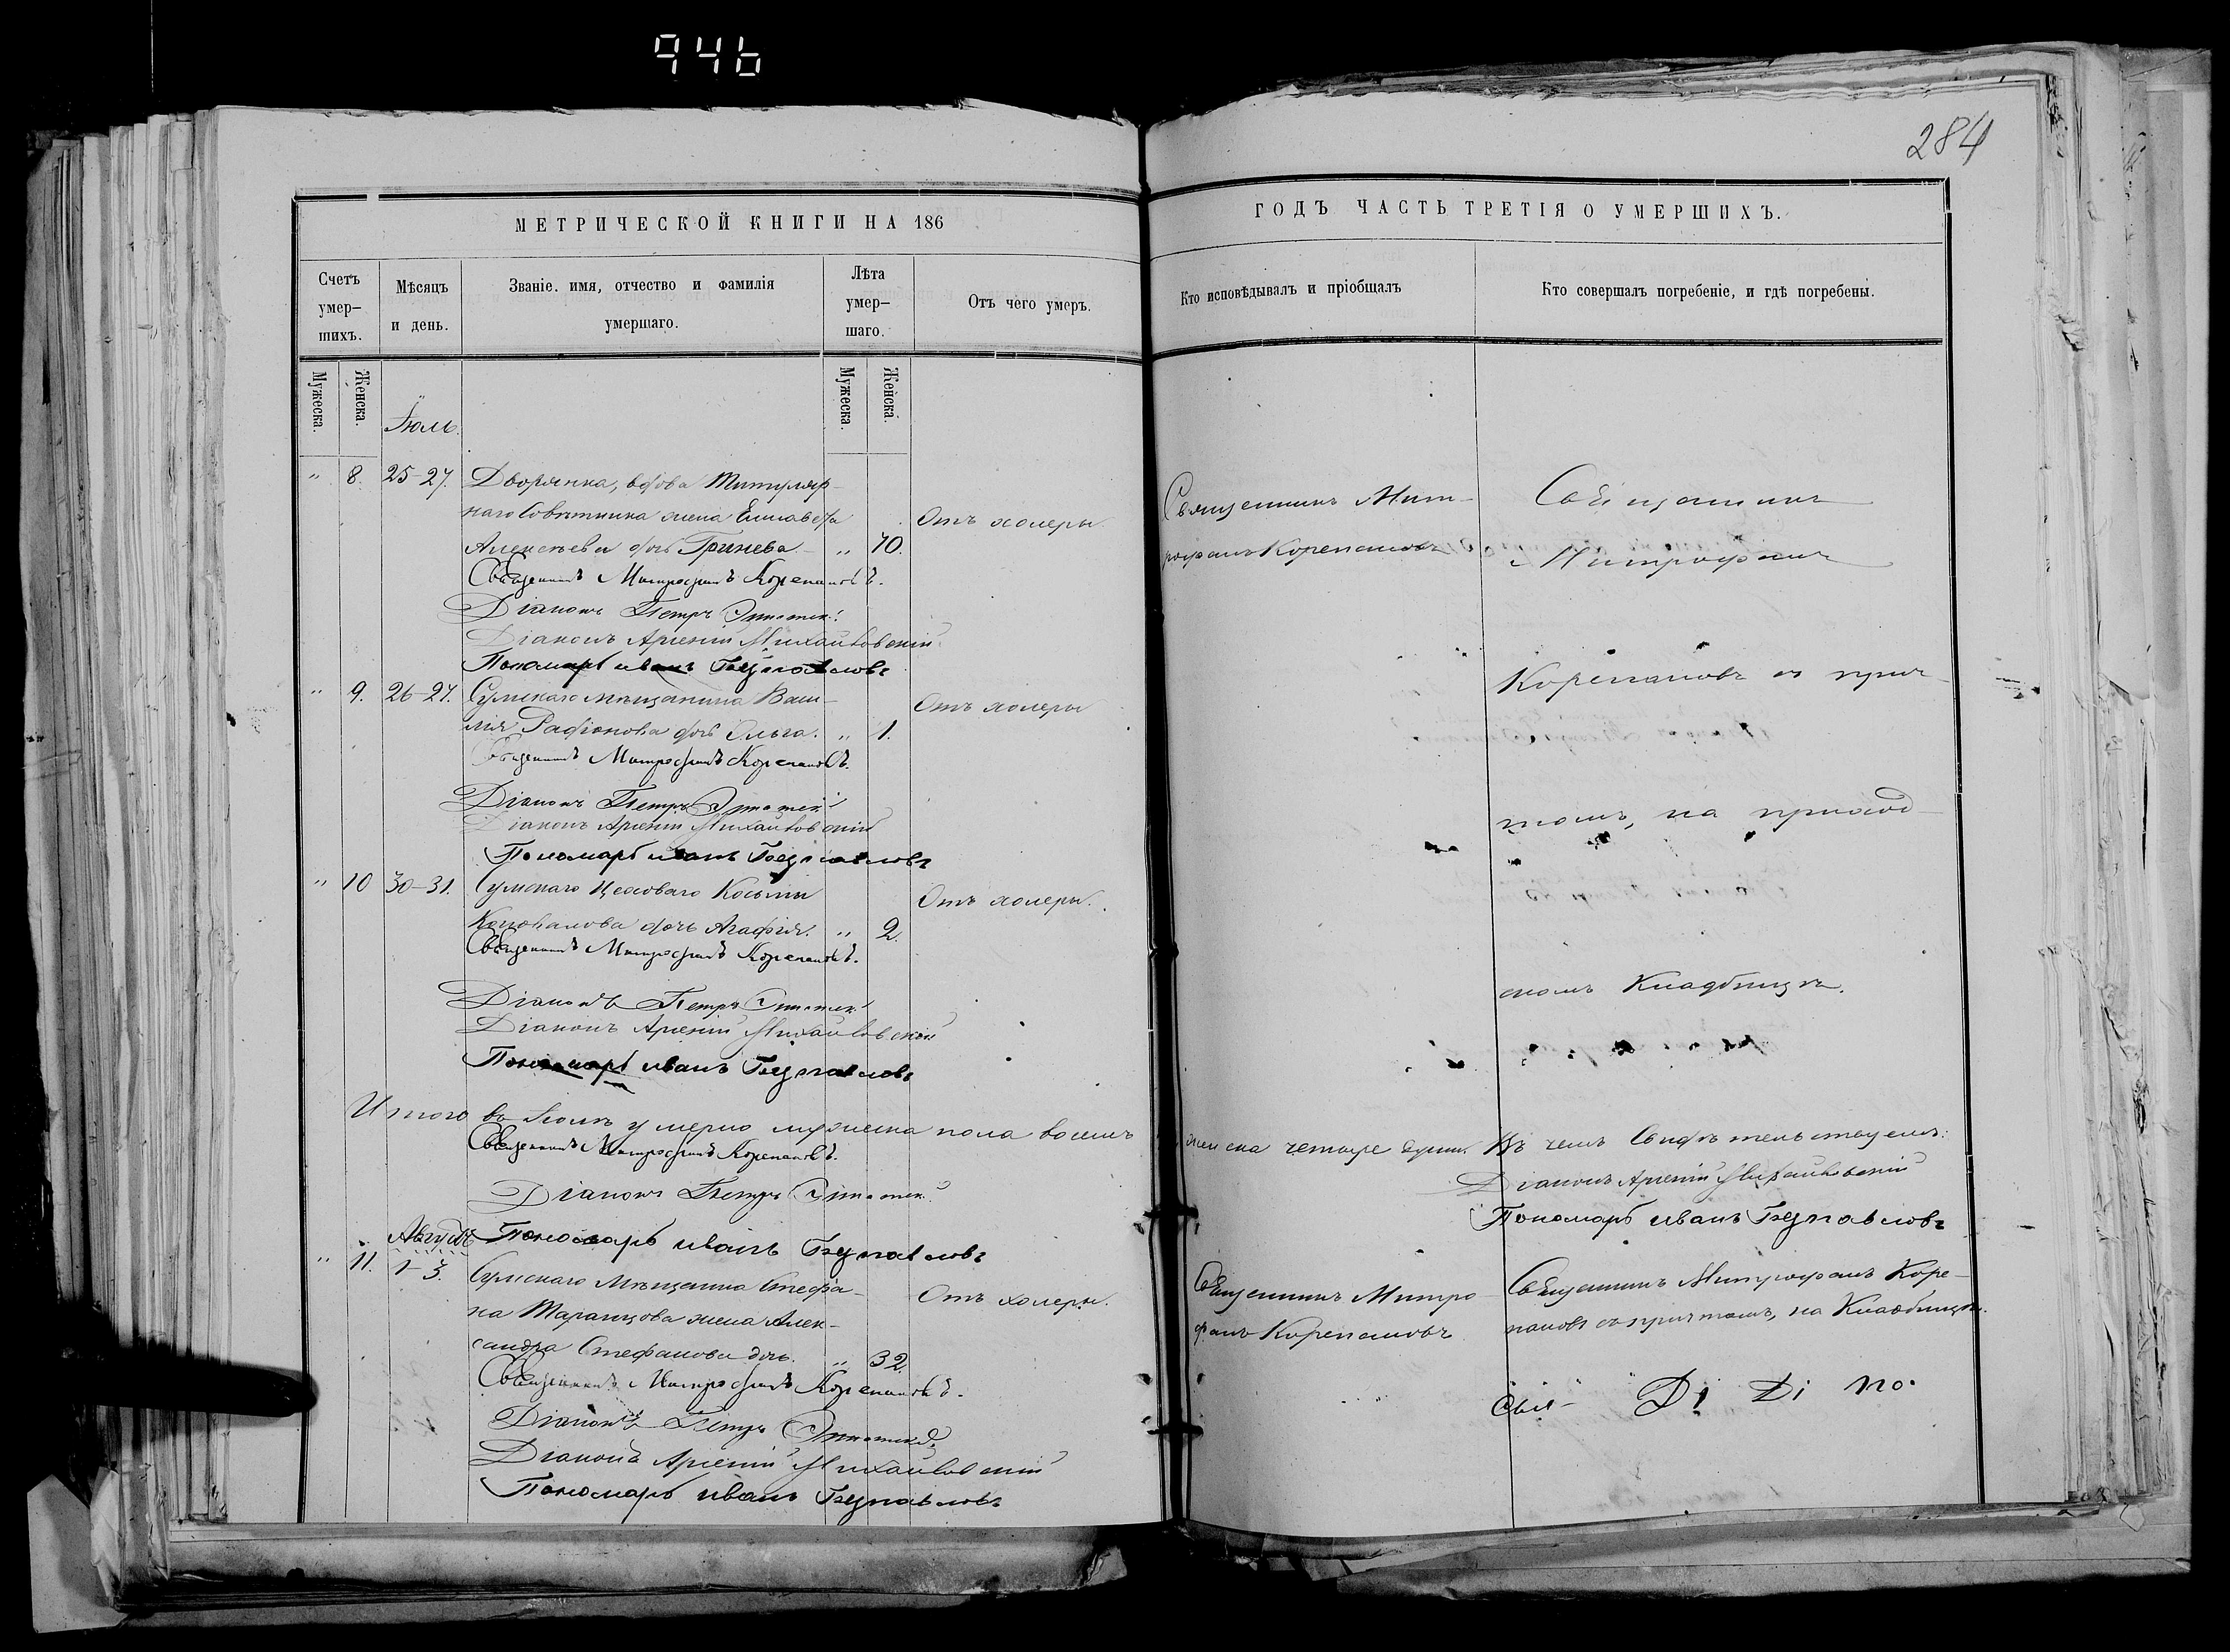 946
284
МЕТРИЧЕСКОЙ КНИГИ НА 186
ГОДЪ ЧАСТЬ ТРЕТІЯ О УМЕРШИХЪ.
Счетъ умер-шихъ.
Мѣсяцъ и день.
Званіе. имя, отчество и фамилія умершаго.
Лѣта умер-шаго.
Отъ чего умеръ.
Кто исповѣдывалъ и пріобщалъ
Кто совершалъ погребеніе, и гдѣ погребены.
Мужеска.
Женска.
Мужеска.
Женска.
Іюль.
" 8. 25-27. Дворянка, вдова Титуляр-
наго Совѣтника жена Елисавета Отъ холеры
Алексѣева дочь Гринева. " 70.
Священникъ Мит-
рофанъ Корепановъ
Священникъ
Митрофанъ
Священникъ Митрофанъ Корепановъ.
Діаконъ Петръ
Діаконъ Арсеній Михайловскій
Пономарь Иванъ
" 9. 26-27. Сумскаго мѣщанина Васи- Отъ холеры
лія Радіонова дочь Ольга. " 1.
Корепановъ съ прич-
Священникъ Митрофанъ Корепановъ.
Діаконъ Петръ
Діаконъ Арсеній Михайловскій
Пономарь Иванъ
томъ, на приход-
" 10 30-31. Сумскаго Цеховаго Косьмы Отъ холеры.
дочь Агафія. " 2.
Священникъ Митрофанъ Корепановъ.
скомъ Кладбищѣ.
Діаконъ Петръ
Діаконъ Арсеній Михайловскій
Пономарь Иванъ
Итого въ Іюлѣ умерло мужеска пола восемь женска четыре души. Въ чемъ Свидѣтельствуемъ:
Священникъ Митрофанъ Корепановъ.
Діаконъ Арсеній Михайловскій
Діаконъ Петръ
Пономарь Иванъ
Августъ
Пономарь Иванъ
" 11. 1-3. Сумскаго Мѣщанина Стефа- Отъ холеры.
на Таранцова жена Алек-
сандра Стефанова дочь. " 32.
Священникъ Митро-
фанъ Корепановъ
Священникъ Митрофанъ Коре-
пановъ съ причтомъ, на Кладбищѣ.
Священникъ Митрофанъ Корепановъ.
Діаконъ Петръ
Діаконъ Арсеній Михайловскій
Пономарь Иванъ
Свя- Ді Ді по.